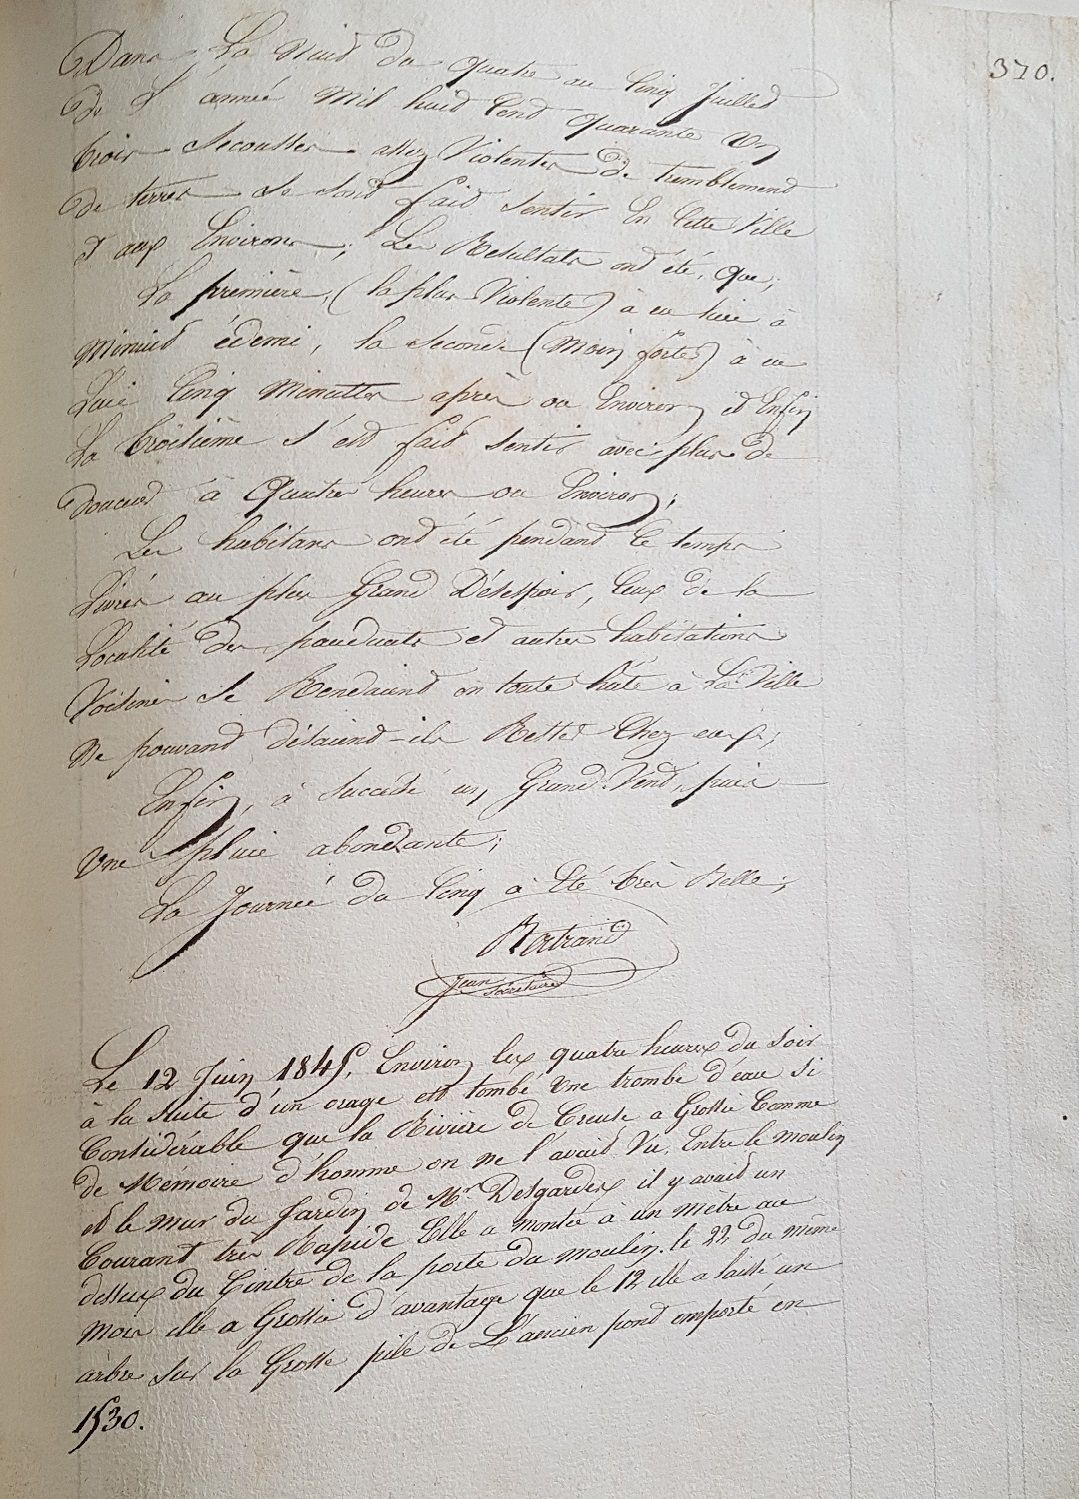 370.
Dans La Nuid du quatre au Cinq Juilled
de L'année Mil huid Cend quarante Un
trois Secousses assez Violentes de tremblemend
de terres Se Sond faid Sentir En Cette Ville
d aux Environs ; Les Résultats ond été, que ;
La première, (la plus Violente) à eu lieu à
Minuid édemi, la Seconde (Moin forte) à eu
Lieu Cinq Minuttes après ou Environ, et Enfin
La troisième s'est faid Sentir avec plus de
douceur à Quatre heures ou Environ ;
Les habitans ond été pendand Ce temps
Livrés au plus Grand Désespoir, Ceux de la
Localité des et autres habitations
Voisines Se Rendaiend en toute hâte à La Ville
Ne pouvand disaiend-ils Rester Chez eux ;
Enfin, à Succédé un, Grand Vend, puis
Une pluie abondante ;
La Journée du Cinq à Eté très Belle ;
Bertrand
Jean
Secrétaire
Le 12 Juin 1845, Environ les quatre heures du Soir
à la Suite d'un orage est tombé Une trombe d'eau Si
Considérable que la Rivière de Creuse a Grossie Comme
de Mémoire d'homme on ne l'avaid Vu, Entre le moulin
et le mur du Jardin de Mr Desgardes il y avaid un
Courant tres Rapide Elle a montée à un mètre au
dessus du Cintre de la porte du moulin. le 22 du même
Mois elle a Grossie d'avantage que le 12 elle a laissé un
arbre Sur la Grosse pile de L'ancien pond emporté en
1530.